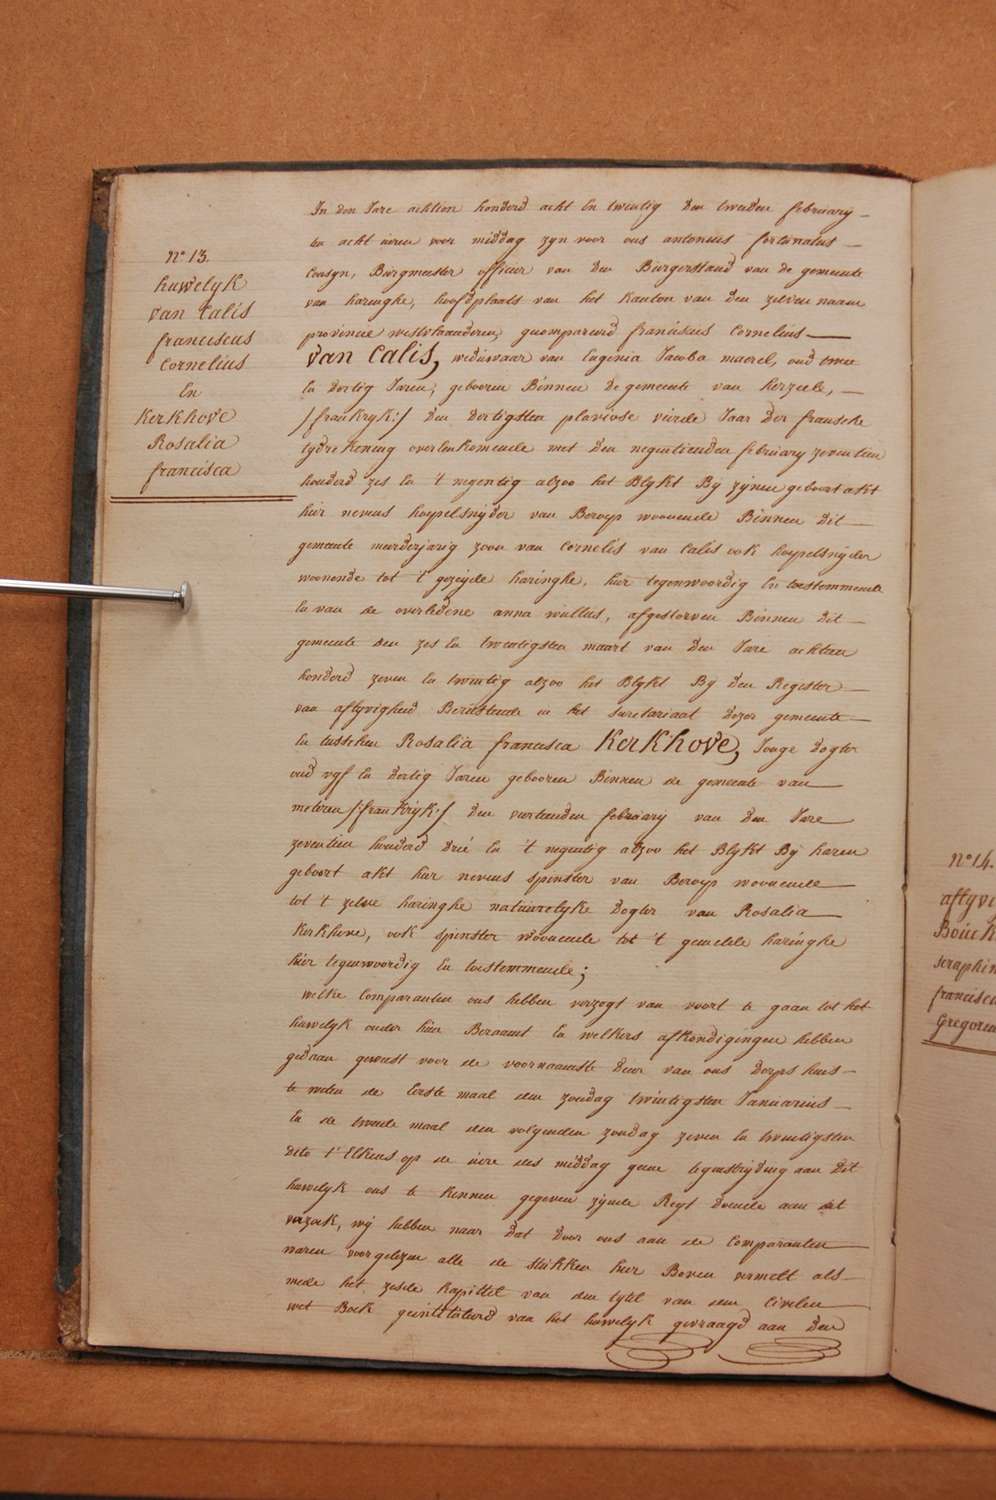 N° 13.
huwelyk
van Calis
franciscus
Cornelius
En
Kerkhove
Rosalia
francisca
In den Jare achtien honderd acht En twintig den tweeden february
ten acht uren voor middag zyn voor ons antonius fortunatus
Burgmeester officier van den Burgerstand van de gemeente
van haringhe, hoofdplaats van het kanton van den zelven naam
provincie westvlaanderen, gecompareerd franciscus Cornelius
van Calis, weduwaar van Eugenia Jacoba maerel, oud twee
En dertig Jaren, gebooren Binnen de gemeente van herzeele,
/:frankryk:/ den dertigsten pluviose vierde Jaar der fransche
tydrekening overeenkomende met den negentienden february zeventien
honderd zes En 't negentig alzoo het Blykt By zynen geboort akt
hier nevens hoppelsnyder van Beroep woonende Binnen dit
gemeente meerderjarig zoon van Cornelis van Calis ook hoppelsnyder
woonende tot 't gezeyde haringhe, hier tegenwoordig En toestemmende
En van de overledene anna wullus, afgestorven Binnen dit
gemeente den zes En twintigsten maart van den Jare achtien
honderd zeven En twintig alzoo het Blykt By den Register
van aflyvigheid Berustende in het secretariaat dezer gemeente
En tusschen Rosalia francisca Kerkhove, Jonge dogter
oud vyf En dertig Jaren gebooren Binnen de gemeente van
meteren /:frankryk:/ den veertienden february van den Jare
zeventien honderd drie En 't negentig alzoo het Blykt By haren
geboort akt hier nevens spinster van Beroep woonende
tot 't zelve haringhe natuurelyke dogter van Rosalia
Kerkhove, ook spinster woonende tot 't gemelde haringhe
hier tegenwoordig En toestemmende;
welke Comparanten ons hebben verzogt van voort te gaan tot het
huwelyk onder hun Beraamt En welkers afkondigingen hebben
gedaan geweest voor de voornaamste deur van ons dorps huis
te weten de Eerste maal den zondag twintigsten Januarius
En de tweede maal den volgenden zondag zeven En twintigsten
dito t'Elkens op de ure des middag geene tegenstryding aan dit
huwelyk ons te kennen gegeven zynde Regt doende aan het
verzoek, wy hebben naar dat door ons aan de Comparanten
waren voorgelezen alle de stukken hier Boven vermelt als
mede het zesde kapittel van den tytel van den Civilen
wet Boek geintituleerd van het huwelyk gevraagd aan den
N° 14.
francisca